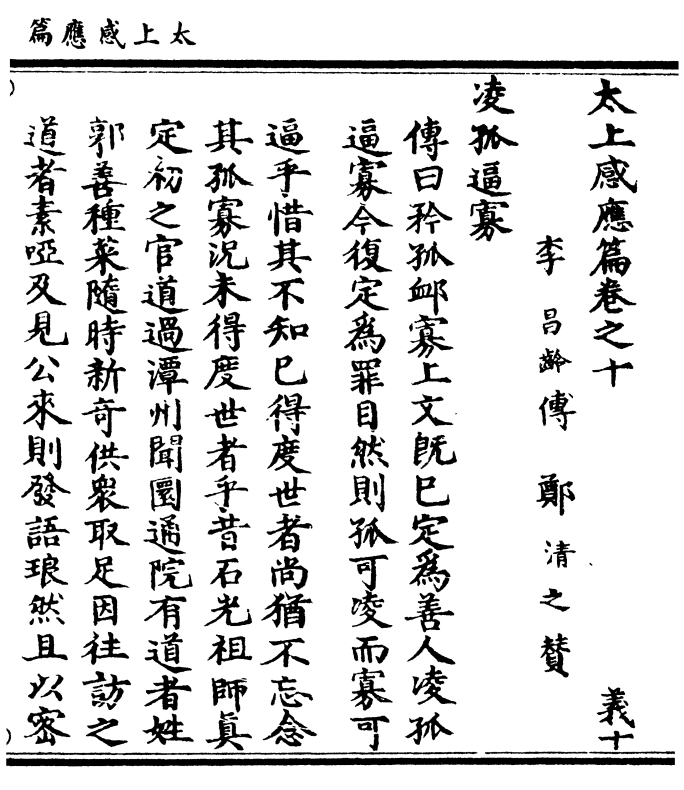 太上感應篇
太上感應篇卷之十　義十
李昌齡傳　鄭清之贊
凌孤逼寡
傳曰矜孤䘏寡上文旣已定爲善人凌孤
逼寡今復定爲罪目然則孤可凌而寡可
逼乎惜其不知已得度世者尚猶不忘念
其孤寡況未得度世者乎昔石光祖師眞
定初之官道過潭州聞圜通院有道者姓
郭善種菜隨時新奇供衆取足因往訪之
道者素啞及見公來則發語琅然且以密